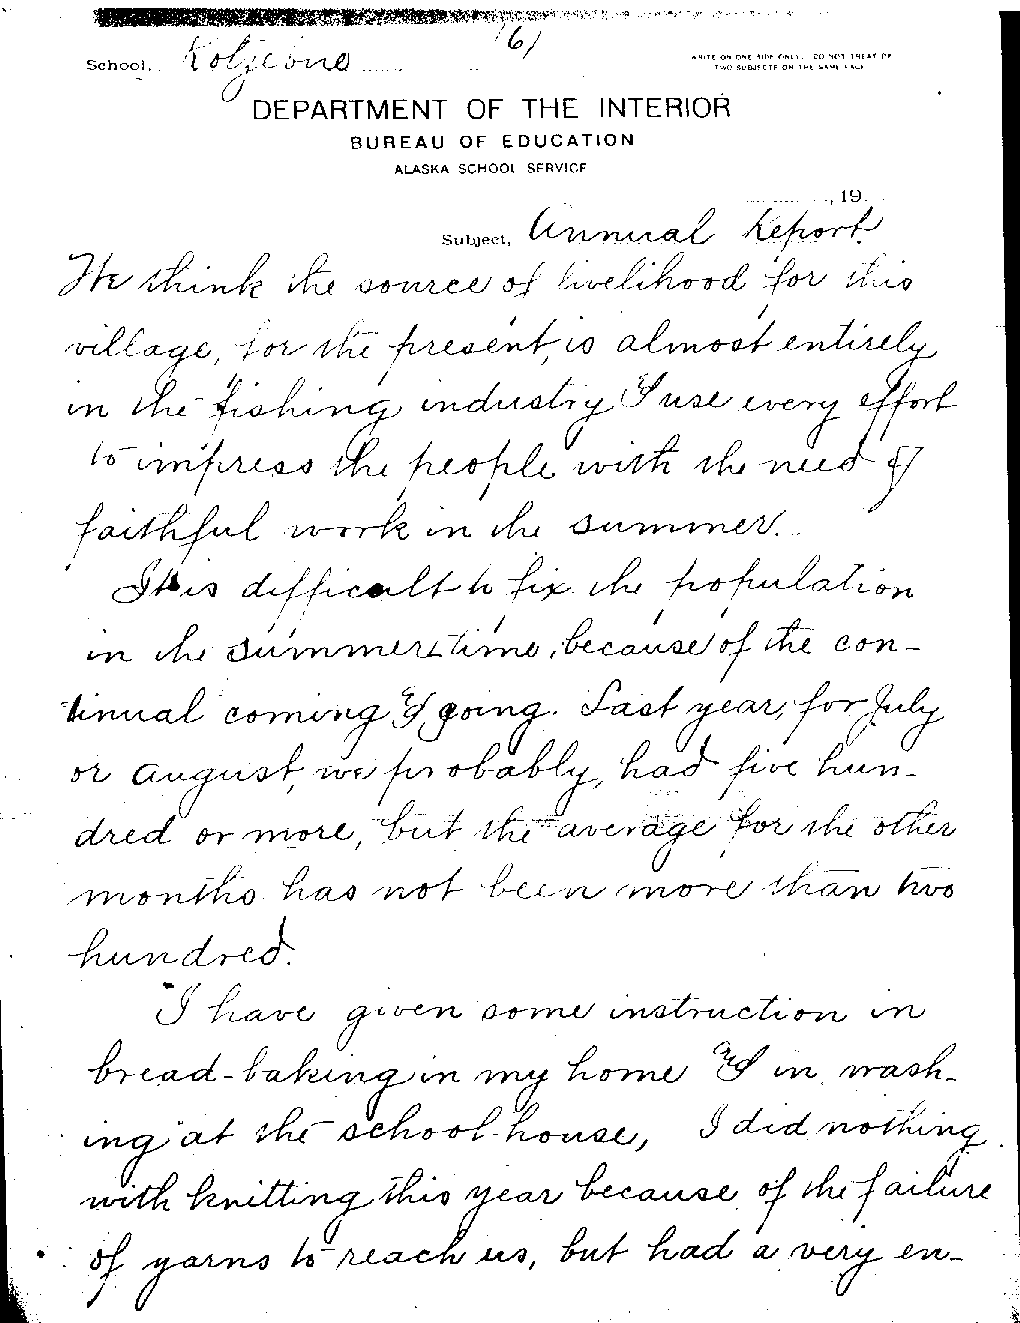 (6)
School, Kotzebue
WRITE ON ONE SIDE ONLY. DO NOT TREAT OF
TWO SUBJECTS ON THE SAME PAGE
DEPARTMENT OF THE INTERIOR
BUREAU OF EDUCATION
ALASKA SCHOOL SERVICE
, 19
Subject, Annual Report.
We think the source of livelihood for this
village, for the present, is almost entirely
in the fishing industry & I use every effort
to impress the people with the need of
faithful work in the summer.
It is difficult to fix the population
in the summer time, because of the con-
tinual coming & going. Last year, for July
or August, we probably, had five hun-
dred or more, but the average for the other
months has not been more than two
hundred.
I have given some instruction in
bread-baking in my home & in wash-
ing at the school-house, I did nothing
with knitting this year because of the failure
of yarns to reach us, but had a very en-